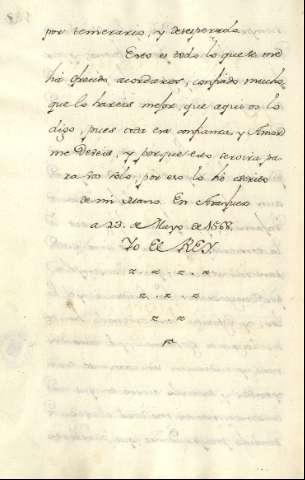 por temerario, y desesperado.
Esto es todo lo que se me
há ofrecido acordaros, confiado mucho,
que lo hareis mejor, que aqui os lo
digo, pues esta era confianza, y Amor
me debeis, y porque esto servirá pa-
ra vos solo, por eso lo hé escrito
de mi Mano. En Aranjuez
a 23. de Mayo de 1568.
Yo El REY.